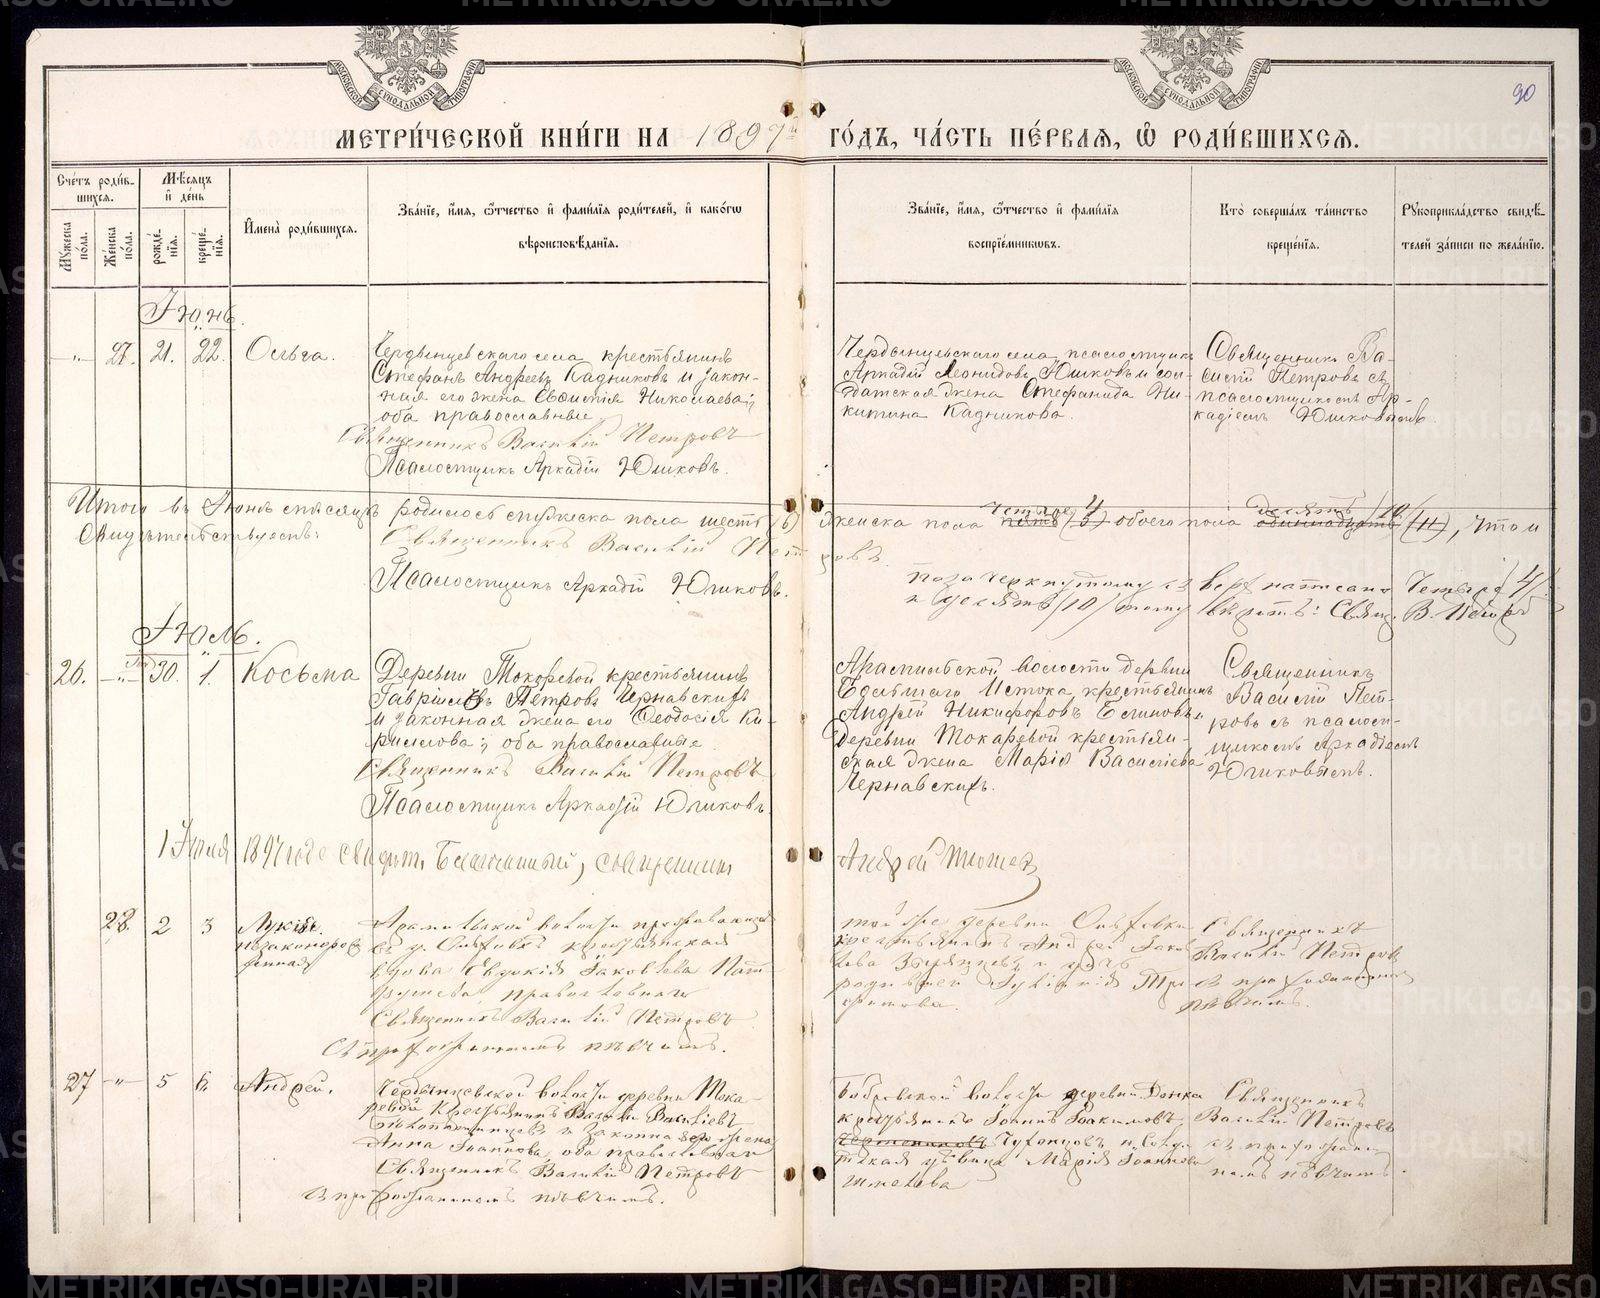 90
МОСКОВСКОЙ СУНОДАЛЬНОЙ ТИПОГРАФІИ
МОСКОВСКОЙ СУНОДАЛЬНОЙ ТИПОГРАФІИ
МЕТРИ́ЧЕСКОЙ КНИ́ГИ НА 1897й ГО́ДЪ, ЧА́СТЬ ПЕ́РВАѦ, Ѽ РОДИ́ВШИХСѦ.
Сче́тъ роди́в-
шихсѧ.
Мꙋ́жеска по́ла.
Же́нска по́ла.
Мѣ́сѧцъ
и҆ де́нь
рожде́нїѧ.
креще́нїѧ.
И҆мена̀ роди́вшихсѧ.
Зва́нїе, и҆́мѧ, ѻ҆́тчество и҆ фами́лїѧ роди́телей, и҆ како́гѡ
вѣроисповѣ́данїѧ.
Зва́нїе, и҆́мѧ, ѻ҆́тчество и҆ фами́лїѧ
воспрїе́мникѡвъ.
Кто̀ соверша́лъ та́инство
креще́нїѧ.
Рꙋкоприкла́дство свидѣ́-
телей за́писи по жела́нїю.
Іюнь.
—„— 27. 21. 22. Ольга.
Чердынцевскаго села крестьянинъ
Стефанъ Андреевъ Кадниковъ и закон-
ная его жена Николаева;
оба православные.
Священникъ Василій Петровъ
Псаломщикъ Аркадій Юшковъ.
Чердынцевскаго села псаломщикъ
Аркадій Леонидовъ Юшковъ и сол-
датская жена Стефанида Ни-
китина Кадникова.
Священникъ Ва-
силій Петровъ съ
псаломщикомъ Ар-
кадіемъ Юшковымъ.
Итого въ Іюнѣ мѣсяцѣ родилось мужеска пола шесть (6) женска пола пять (5) четыре 4 обоего пола одиннадцать (11) десять /10/, что и
Свидѣтельствуемъ:
Священникъ Василій Петровъ
Псаломщикъ Аркадій Юшковъ.
по зачеркнутому съ верху написано Четыре /4/
и десять /10/ тому вѣрить: Свящ. В. Петровъ
Іюль.
26. —„— 30. 1. Косьма
Деревни Токаревой крестьянинъ
Гавріилъ Петровъ Чернавскихъ
и законная жена его Ѳеодосія Ки-
риллова; оба православные
Священникъ Василій Петровъ
Псаломщикъ Аркадій Юшковъ
Арамильской волости деревни
Истока крестьянинъ
Андрей Никифоровъ
деревни Токаревой крестьян-
ская жена Марія Васильева
Чернавскихъ.
Священникъ
Василій Пет-
ровъ съ псалом-
щикомъ Аркадіемъ
Юшковымъ.
1 Іюля 1897 года свидѣт. Благочинный, священникъ
Андрей
28. 2 3
незаконорож
денная
Арамильской волости проживающая
въ д. крестьянская
вдова Евдокія Іаковлева
православная
Священникъ Василій Петровъ
Съ пѣвчимъ.
той же деревни
крестьянинъ Андрей Іаков-
лева и дочь
Священникъ
Василій Петровъ
пѣвчимъ.
27 —„— 5 6. Андрей.
Чердынцевской волости деревни Тока-
ревой крестьянинъ Василій Васильевъ
и законная его жена
Анна Іоаннова, оба православные
Священникъ Василій Петровъ
пѣвчимъ.
Бобровской волости деревни
крестьянинъ Іоаннъ Іоакимовъ
дѣвица Марія Іоаннова
Священникъ
Василій Петровъ
пѣвчимъ.
METRIKI.GASO-URAL.RU